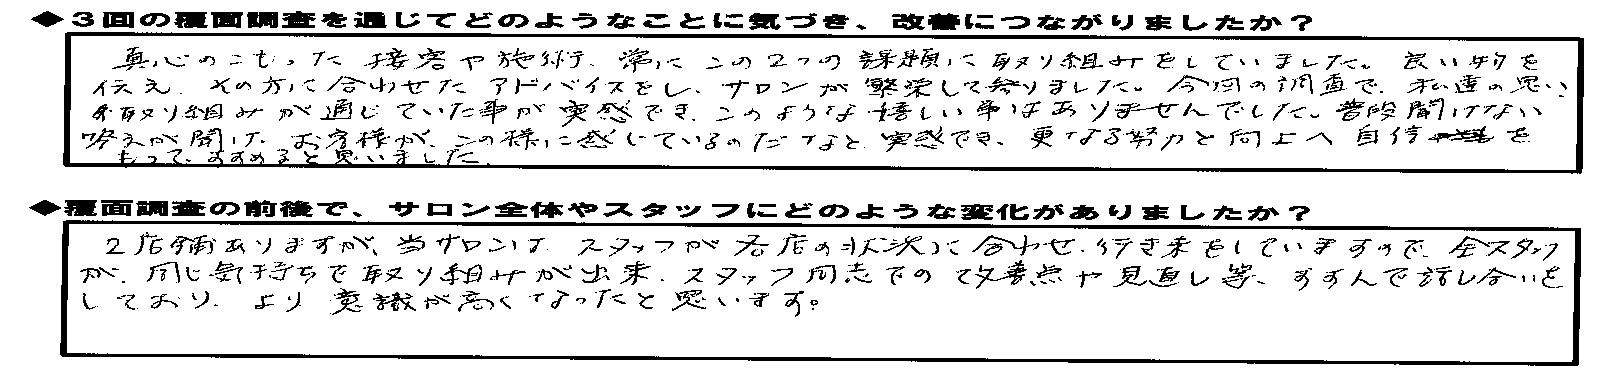 ◆３回の覆面調査を通じてどのようなことに気づき、改善につながりましたか？
真心のこもった接客や施術、常にこの２つの課題に取り組みをしていました。良い物を
伝え、その方に合わせたアドバイスをし、サロンが繁栄して参りました。今回の調査で、私達の思い
取り組みが通じていた事が実感でき、このような嬉しい事はありませんでした。普段聞けない
答えが聞け、お客様が、この様に感じているのだなと実感でき、更なる努力と向上へ自信を
もって、すすめると思いました。
◆覆面調査の前後で、サロン全体やスタッフにどのような変化がありましたか？
２店舗ありますが、当サロンは、スタッフが各店の状況に合わせ、行き来をしていますので、全スタッフ
が、同じ気持ちで取り組みが出来、スタッフ同志での改善点や見直し等、すすんで話し合いを
しており、より意識が高くなったと思います。